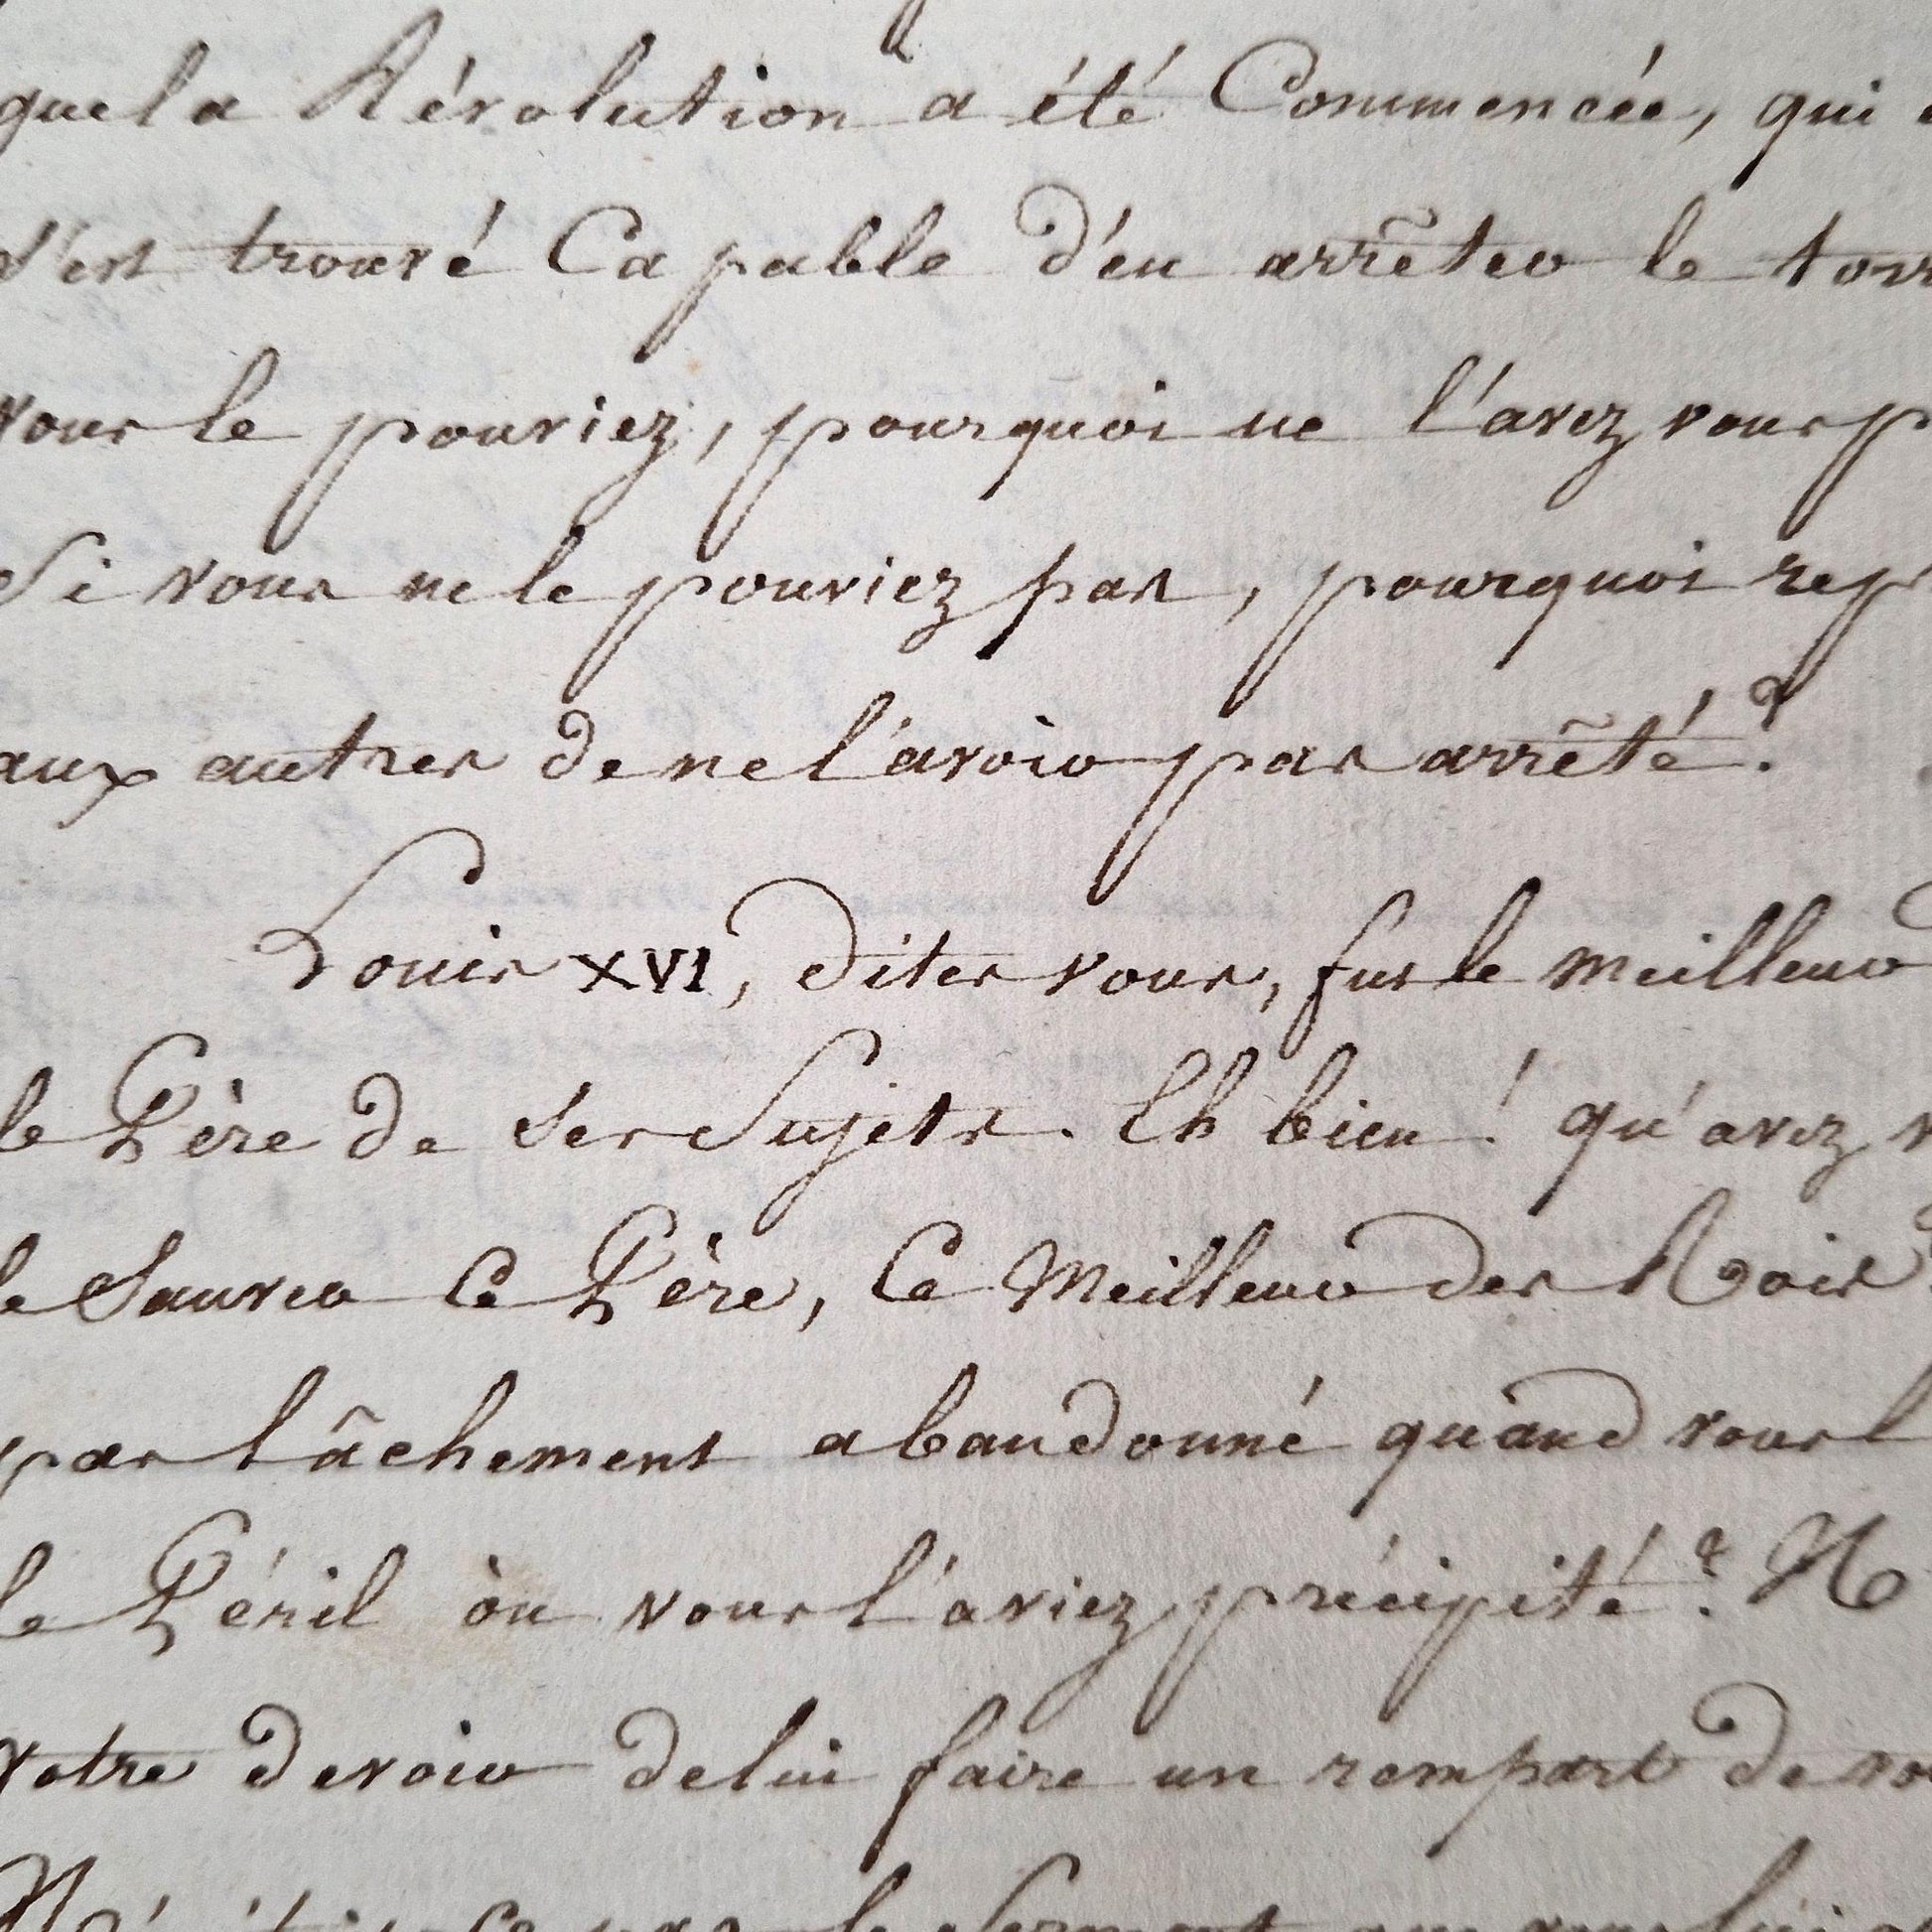 que la Révolution a été Commencée, qui
s'est trouvé Capable d'en arrêter le torr
vous le pouviez, pourquoi ne l'avez vous p
Si vous ne le pouviez pas, pourquoi rep
aux autres de ne l'avoir pas arrêté?
Louis XVI, dites vous, fut le meilleur
le Père de ses Sujets. Eh bien! qu'avez v
le Sauver Ce Père, Ce Meilleur des Rois
pas lâchement abandonné quand vous l
le Péril òu vous l'aviez précipité? N
votre devoir de lui faire un rempart de vo